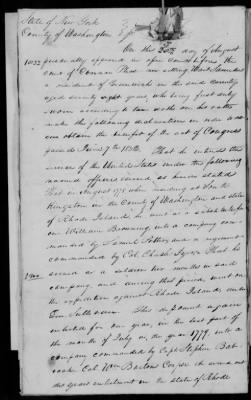 State of New York
County of Washington
On this 20th day of August
1832 personally appeared in open court before the
court of Common Pleas now sitting
a resident of Greenwich in the said County
aged seventy eight years who being first duly
sworn according to law doth on his oath
make the following declaration in order to
obtain the benefit of the act of Congress
passed June 7th 1832. That he entered the
service of the United States under the following
named officers & served as herein stated
That in August 1778 when residing at South
Kingston in the County of Washington and state
of Rhode Island he went as a substitute for
one William Browning into a company com-
manded by Samuel Potter and a regiment
commanded by Col. Christ
served as a soldier two months in said
company and during that period went on
the expedition against Rhode Island under
Genl Sullivan. This deponent again
enlisted for one year, in the last part of
the month of July in the year 1779 into a
company commanded by Capt Stephen Bab-
cock Col Wm Bartons Corps &
this years enlistment in the state of Rhode